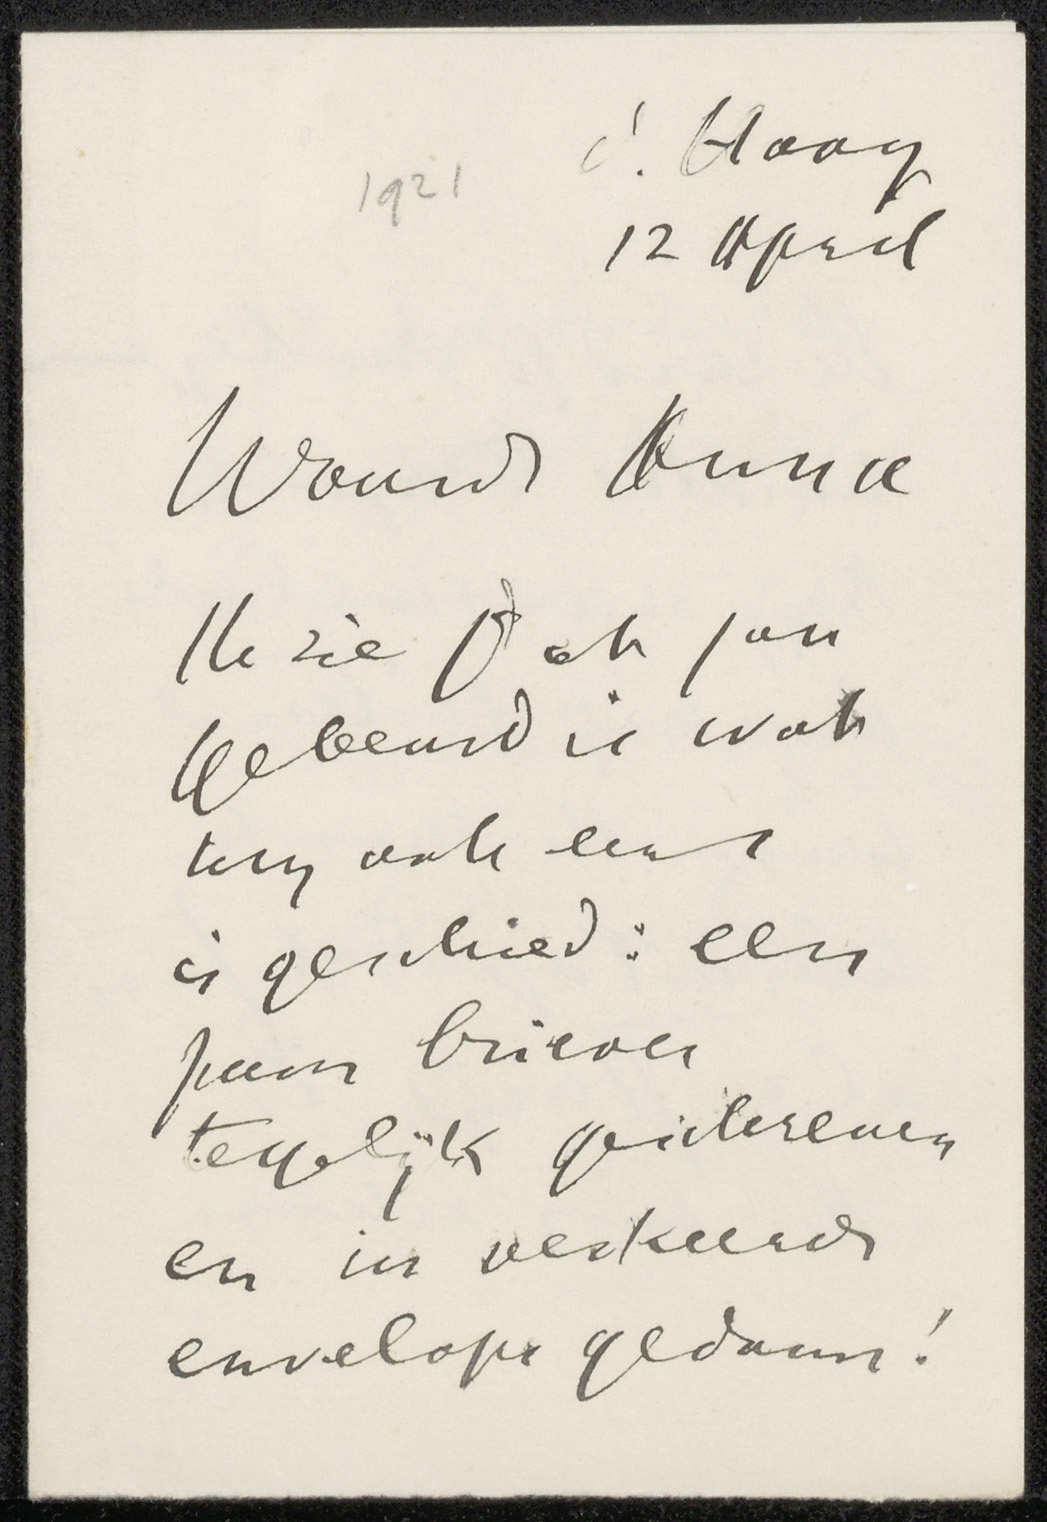 d'. Haag
1921
12 April
Waarde Anna
Ik zie dat jou
gebeurd is wat
mij ook eens
is geschied: een
paar brieven
tegelijk geschreven
en in verkeerde
envelope gedaan!